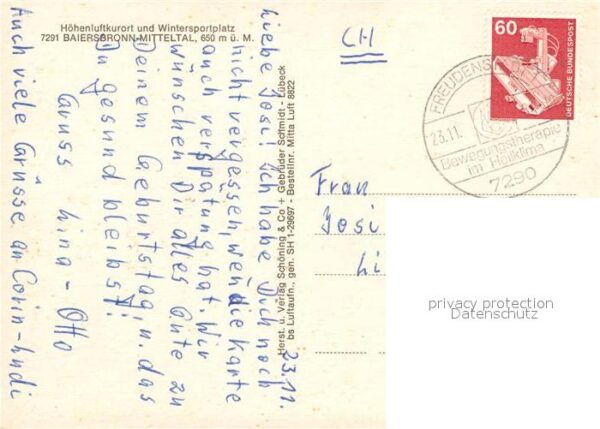 Höhenluftkurort und Wintersportplatz
7291 BAIERSBRONN-MITTELTAL, 650 m ü. M.
23.11.
Liebe Josi! Ich habe Dich noch
nicht vergessen, wen die Karte
auch verspätung hat. Wir
wünschen Dir alles Gute zu
Deinem Geburtstag, u. das
Du gesund bleibst!
Gruss Lina - Otto
Auch viele Grüsse an Corin-Andi
Herst. u. Verlag Schöning & Co + Gebrüder Schmidt - Lübeck
bs Luftaufn., gen. SH 1-29697 - Bestellnr. Mitta Luft 8822
CH
60
DEUTSCHE BUNDESPOST
23.11.
Bewegungstherapie
im Heilklima
7290
Frau
Josi
Li
privacy protection
Datenschutz